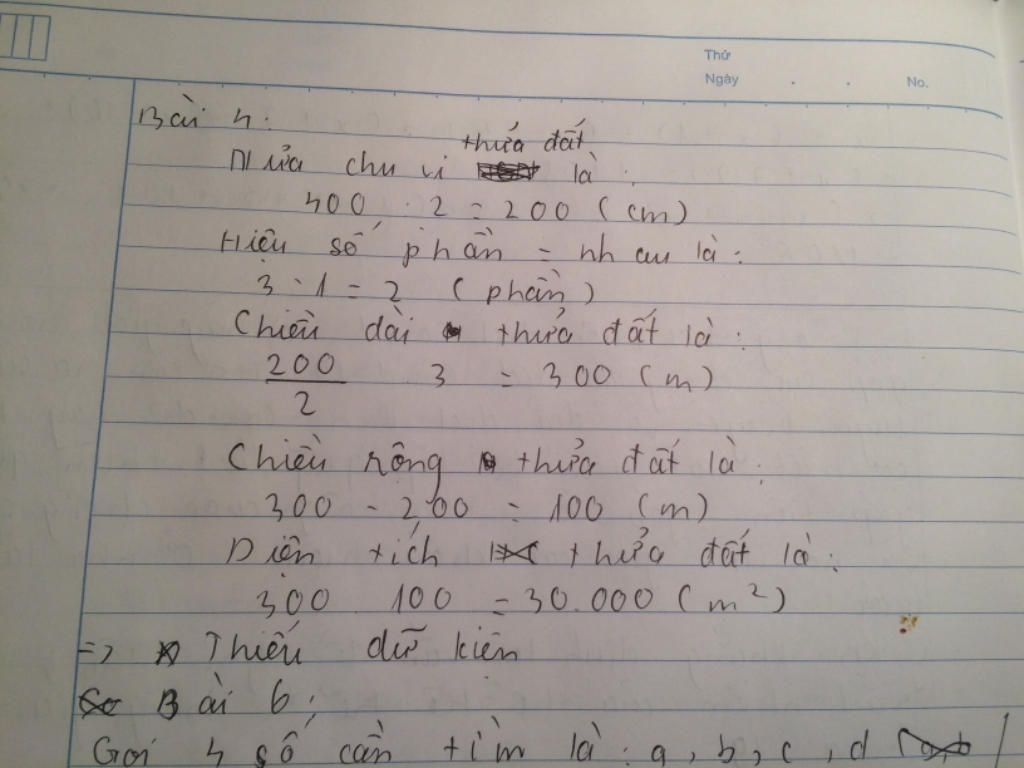 Thứ
Ngày . . No.
Bài 4:
Nửa chu vi thửa đất là:
400 : 2 = 200 (cm)
Hiệu số phần = nhau là:
3 - 1 = 2 (phần)
Chiều dài thửa đất là:
200/2 . 3 = 300 (m)
Chiều rộng thửa đất là:
300 - 200 = 100 (m)
Diện tích thửa đất là:
300 . 100 = 30.000 (m²)
=> Thiếu dữ kiện
Bài 6:
Gọi 4 số cần tìm là: a, b, c, d